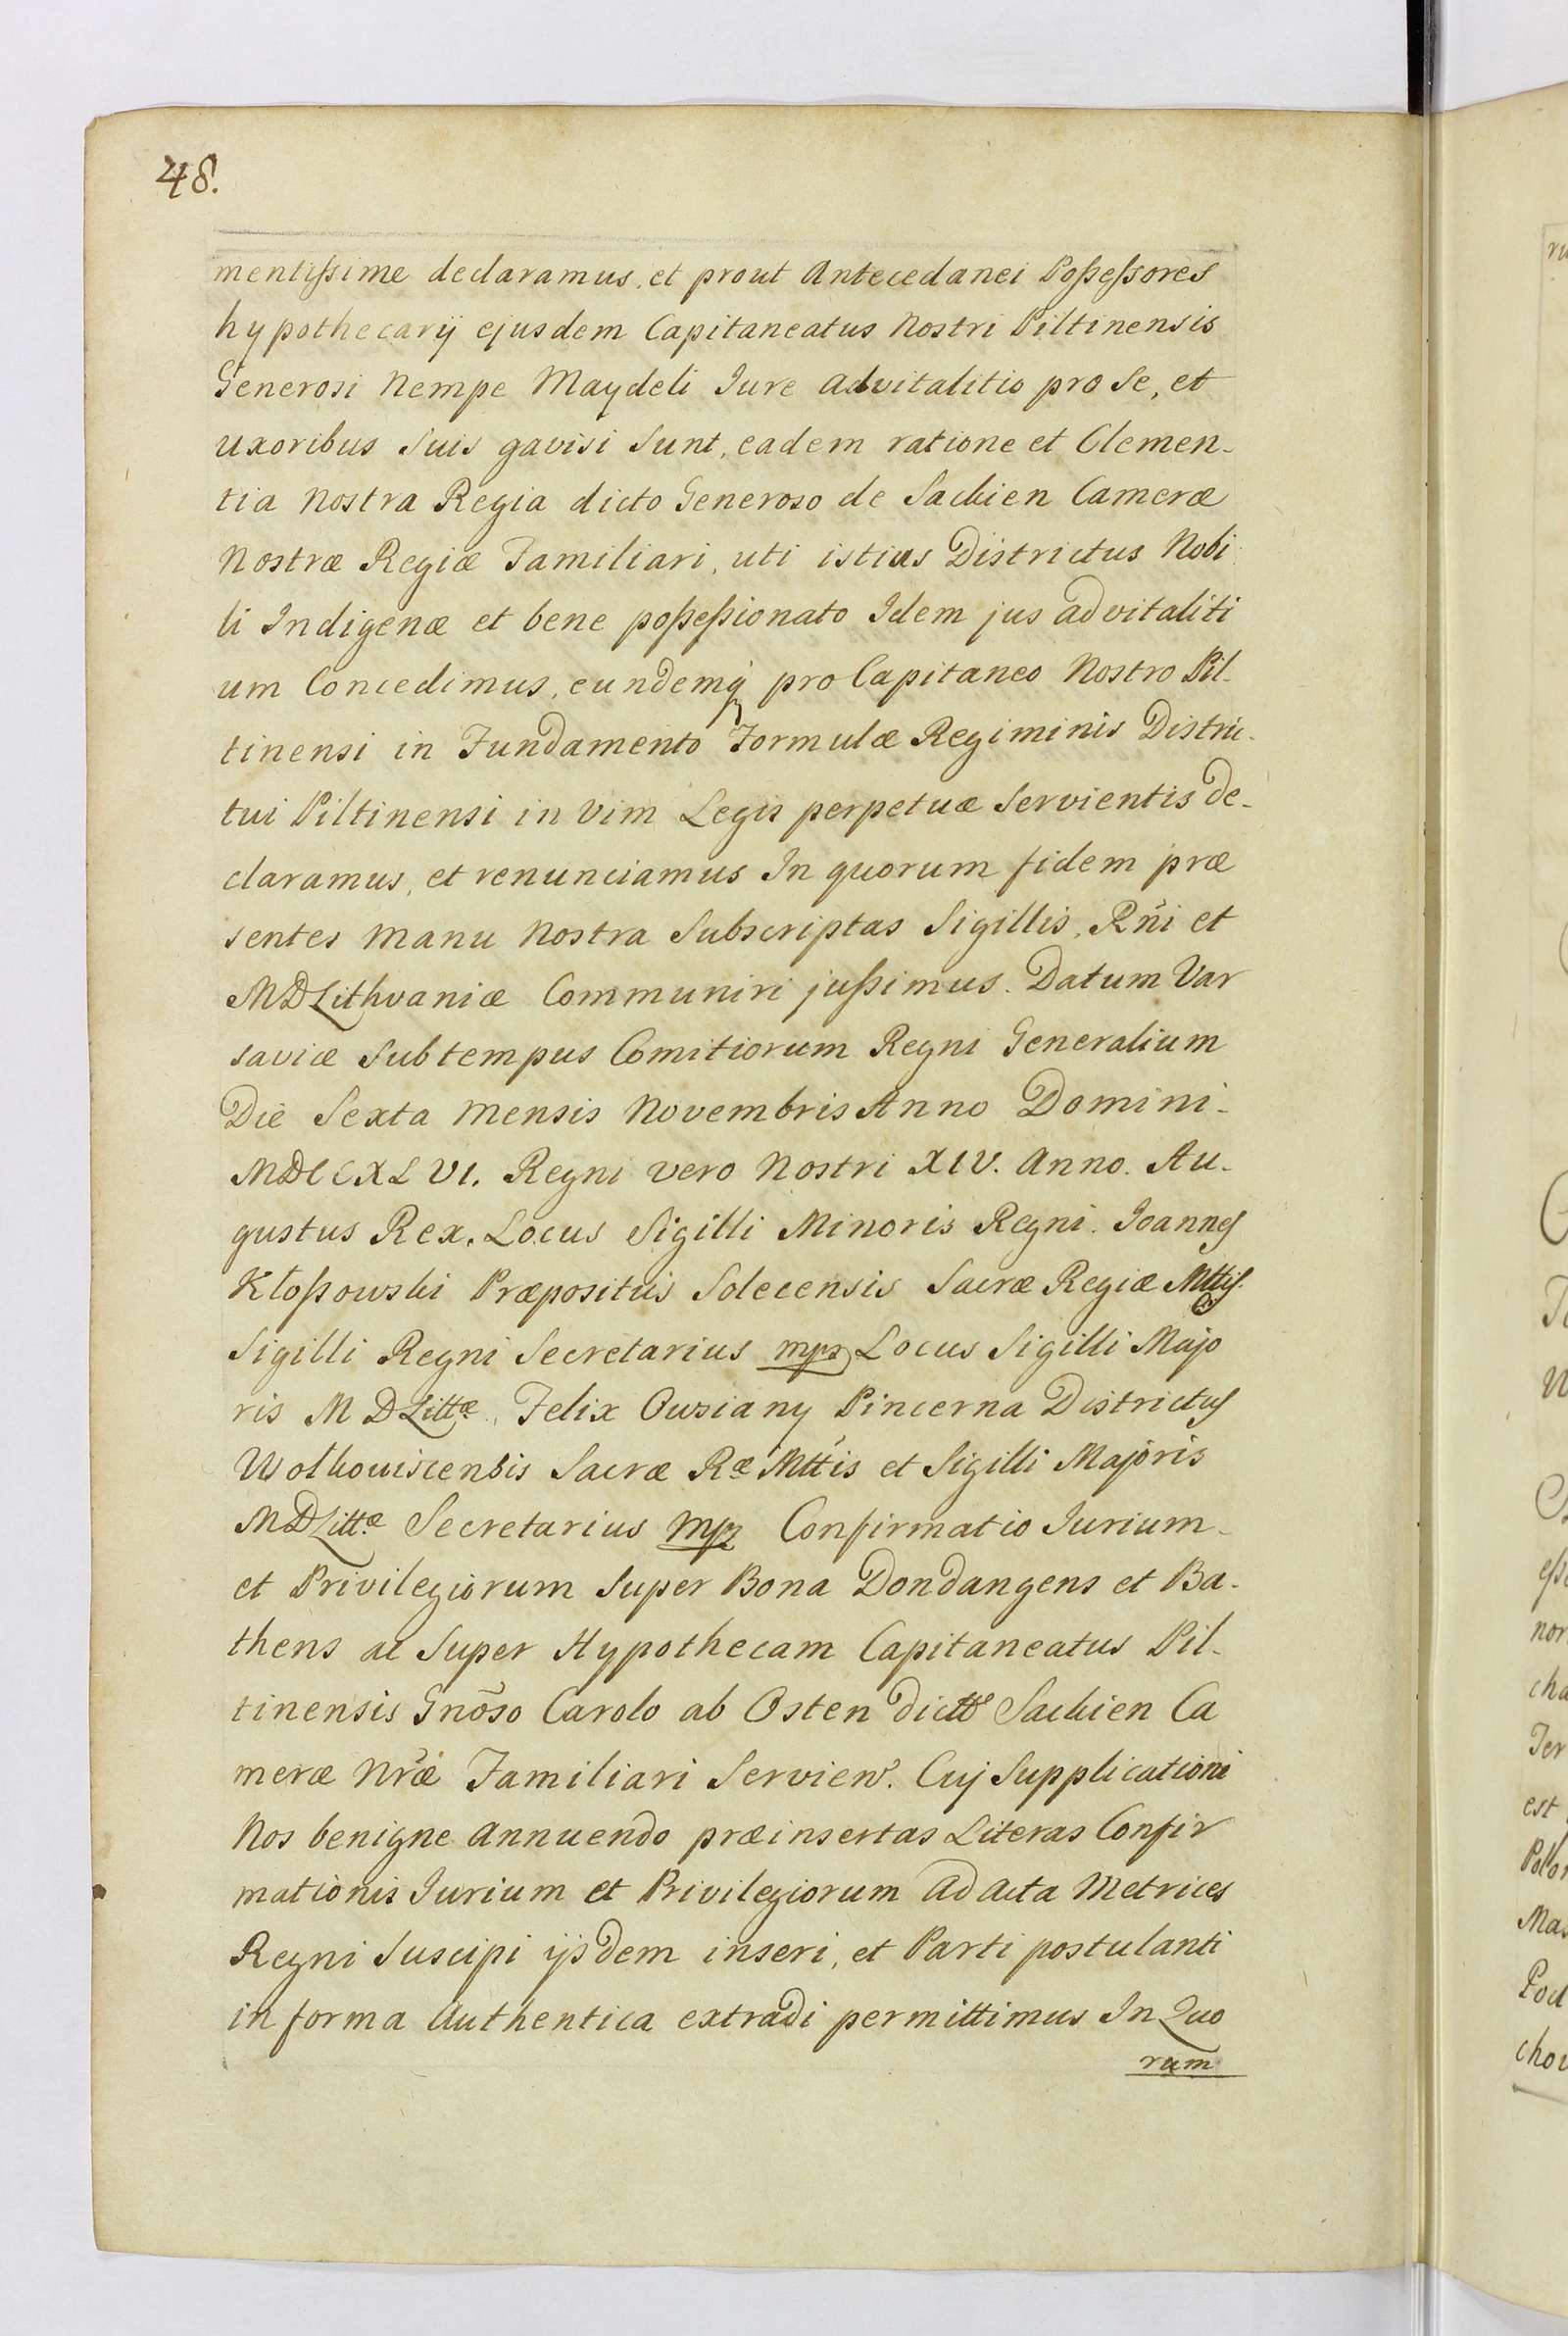 48.
mentiſsime declaramus, et prout Antecedanei Poſseſsores
hypothecarÿ ejusdem Capitaneatus Nostri Piltinensis
Generosi Nempe Maydeli Jure advitalitio pro Se, et
uxoribus Suis gavisi Sunt, eadem ratione et Clemen-
tia Nostra Regia dicto Generoso de Sacken Cameræ
Nostræ Regiæ Familiari, uti istius Districtus Nobi
li Indigenæ et bene poſseſsionato Idem jus advitaliti
um Concedimus, eundemq́ pro Capitaneo Nostro Pil-
tinensi in Fundamento Formulæ Regiminis Distric-
tui Piltinensi in Vim Legis perpetuæ Servientis de-
claramus, et renunciamus In quorum fidem præ
sentes Manu Nostra Subscriptas Sigillis, Rñi et
MDLithvaniæ Communiri juſsimus. Datum Var
saviæ Sub tempus Comitiorum Regni Generalium
Die Sexta Mensis Novembris Anno Domini-
MDCCXLVI. Regni vero Nostri XIV. Anno. Au-
gustus Rex. Locus Sigilli Minoris Regni. Joannes
Kłoſsowski Præpositus Solecensis Sacræ Regiæ Mttis
Sigilli Regni Secretarius mpr Locus Sigilli Majo
ris M D Littæ, Felix Owsiany Pincerna Districtus
Wołkowiscensis Sacræ Ræ Mttis et Sigilli Majoris
MDLittæ Secretarius mpr Confirmatio Jurium-
et Privilegiorum Super Bona Dondangens et Ba-
thens ac Super Hypothecam Capitaneatus Pil-
tinensis Gnõso Carolo ab Osten dictto Sacken Ca
meræ Nræ Familiari Servien. Cuj Supplicationi
Nos benigne Annuendo præinsertas Literas Confir
mationis Jurium et Privilegiorum Ad Acta Metrices
Regni Suscipi ijsdem inseri, et Parti postulanti
in forma Authentica extradi permittimus In Quo
rum